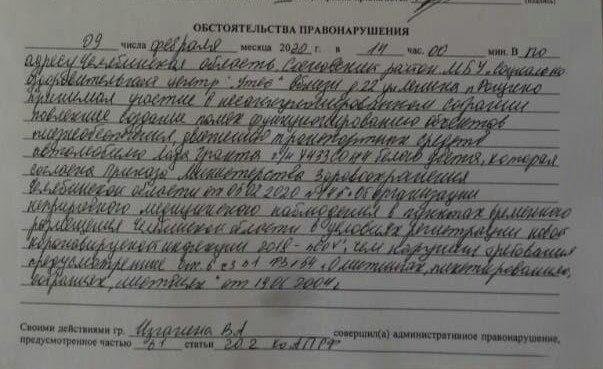 (подпись)
ОБСТОЯТЕЛЬСТВА ПРАВОНАРУШЕНИЯ
09 числа февраля месяца 2020 г. в 14 час. 00 мин. В по
адресу Челябинская область Сосновский район МБУ "Социально
оздоровительный центр "Утес" вблизи д 22 ул Ленина п Рощино
принимая участие в несанкционированном собрании
повлекшие создание помех функционированию объектов
жизнеобеспечения движению транспортных средств
автомобилю Лада Гранта белого цвета, которая
согласно Приказа Министерства Здравоохранения
Челябинской области от 05.02.2020 организации
непрерывного медицинского наблюдения в пунктах временного
размещения Челябинской области в условиях регистрации новой
коронавирусной инфекции 2019-nCoV, чем нарушил требования
предусмотренные ст. 6 ФЗ №54 "О митингах, пикетированиях,
собраниях, " от 19.06.2004 г
Своими действиями гр. совершил(а) административное правонарушение,
предусмотренное частью статьи 20.2 КоАП РФ